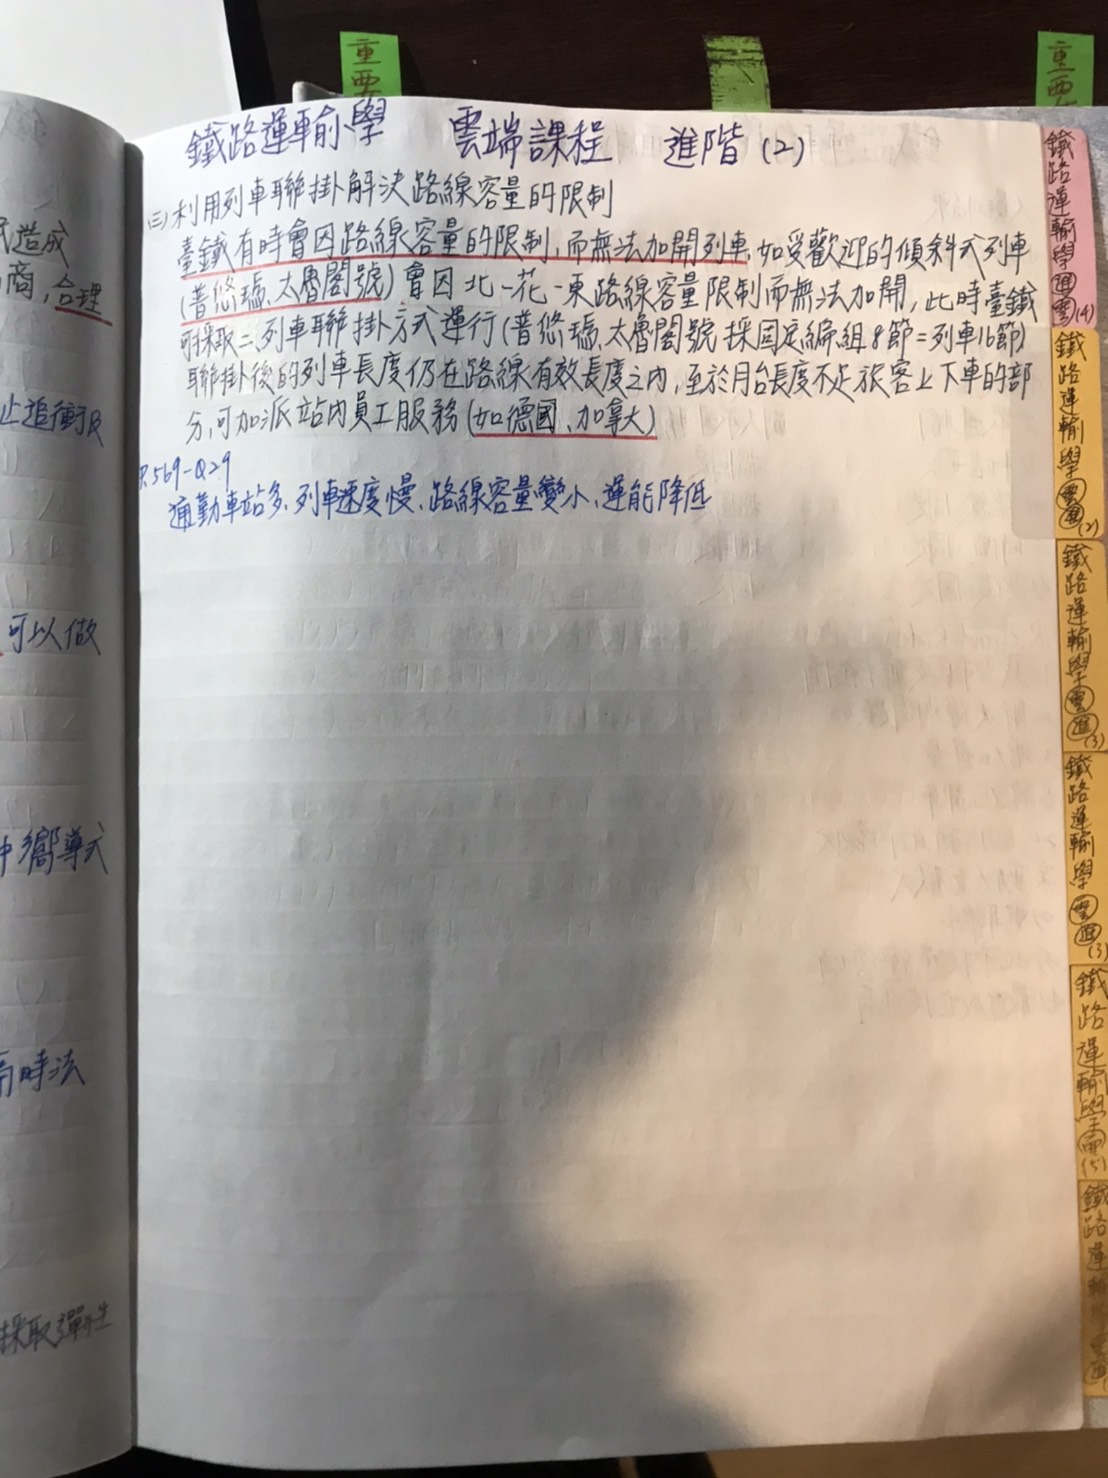 重要
重要
鐵路運輸學 雲端課程 進階(2)
(三)利用列車聯掛解決路線容量的限制
臺鐵有時會因路線容量的限制,而無法加開列車,如受歡迎的傾斜式列車
(普悠瑪、太魯閣號)會因北-花-東路線容量限制而無法加開,此時臺鐵
可採取二列車聯掛方式運行(普悠瑪、太魯閣號採固定編組8節=列車16節)
聯掛後的列車長度仍在路線有效長度之內,至於月台長度不足旅客上下車的部
分,可加派站內員工服務(如德國、加拿大)
P.569-Q29
通勤車站多、列車速度慢、路線容量變小、運能降低
造成
商,合理
止追衝及
可以做
嚮導式
時法
採取彈性
鐵路運輸學進雲(4)
鐵路運輸學雲進(2)
鐵路運輸學雲進(3)
鐵路運輸學雲進(3)
鐵路運輸學(5)
鐵路運輸學